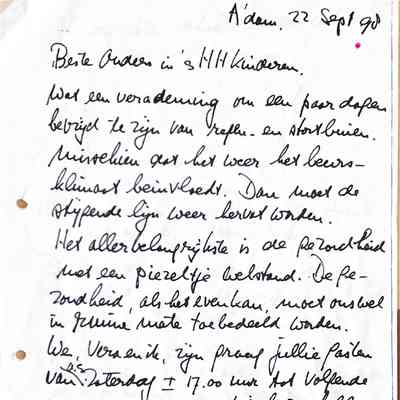 A'dam, 22 Sept 98
Beste Ouders in 's HH Kinderen.
Wat een verademing om een paar dagen
bevrijd te zijn van regen- en stortbuien.
Misschien dat het weer het beurs-
klimaat beinvloedt. Dan moet de
stijgende lijn weer hervat worden.
Het allerbelangrijkste is de gezondheid
met een piezeltje welstand. De ge-
zondheid, als het even kan, moet ons wel
in ruime mate toebedeeld worden.
We, Vera en ik, zijn graag jullie gasten
van a.s. Zaterdag ± 17.00 uur tot volgende